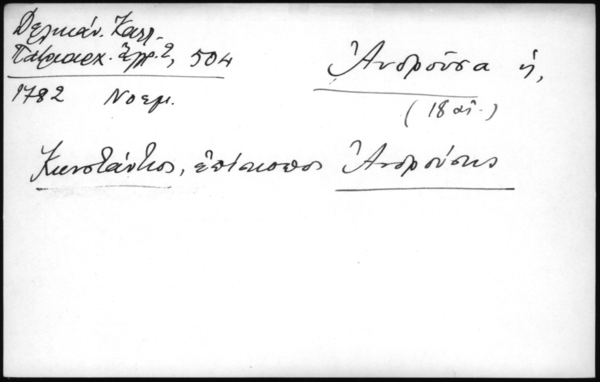 Δελικάν. Καλλ.
Πατριαρχ. Ἔγγρ. 2, 504
1782 Νοεμ.
Ἀνδροῦσα ἡ,
(18 αἰ.)
Κωνστάντιος, ἐπίσκοπος Ἀνδρούσης